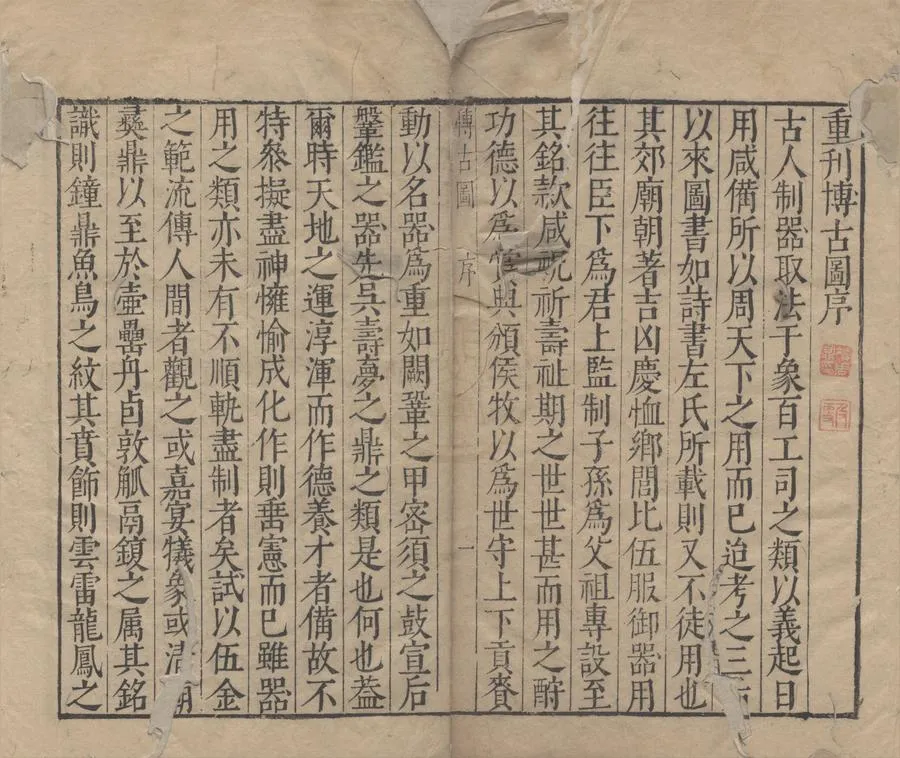 重刊博古圖序
古人制器取法于象百工司之類以義起日
用咸備所以周天下之用而已迨考之三
以來圖書如詩書左氏所載則又不徒用也
其郊廟朝著吉凶慶恤鄉閭比伍服御器用
往往臣下爲君上監制子孫爲父祖專設至
其銘款咸祝祈壽祉期之世世甚而用之酧
功德以爲典頒侯牧以爲世守上下貢賚
博古圖 序 一
動以名器爲重如闕鞏之甲密須之鼓宣后
鞶鑑之器先吳壽夢之鼎之類是也何也葢
爾時天地之運淳渾而作德養才者備故不
特叅擬盡神懽愉成化作則垂憲而已雖器
用之類亦未有不順軌盡制者矣試以伍金
之範流傳人間者觀之或嘉宴犧象或清廟
彝鼎以至於壺罍丹卣敦觚鬲鍑之属其銘
識則鐘鼎魚鳥之紋其賁飾則雲雷龍鳳之